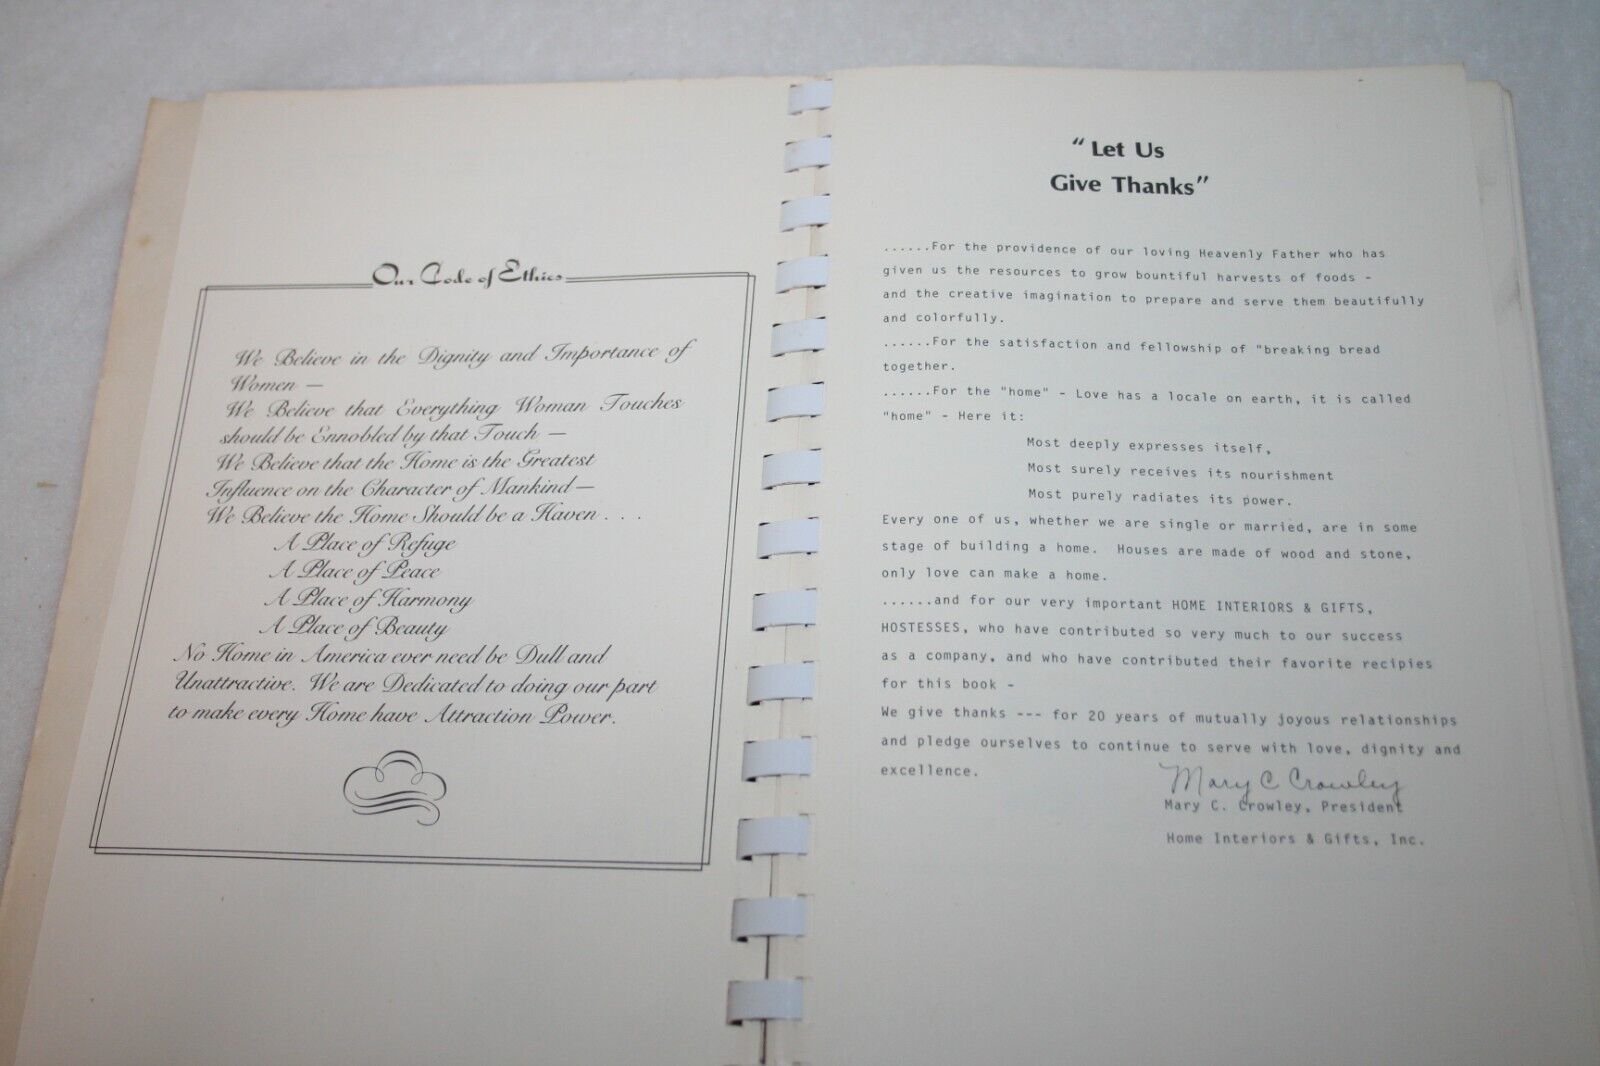 Our Code of Ethics
We Believe in the Dignity and Importance of
Women —
We Believe that Everything Woman Touches
should be Ennobled by that Touch —
We Believe that the Home is the Greatest
Influence on the Character of Mankind —
We Believe the Home Should be a Haven . . .
A Place of Refuge
A Place of Peace
A Place of Harmony
A Place of Beauty
No Home in America ever need be Dull and
Unattractive. We are Dedicated to doing our part
to make every Home have Attraction Power.
"Let Us
Give Thanks"
......For the providence of our loving Heavenly Father who has
given us the resources to grow bountiful harvests of foods -
and the creative imagination to prepare and serve them beautifully
and colorfully.
......For the satisfaction and fellowship of "breaking bread
together.
......For the "home" - Love has a locale on earth, it is called
"home" - Here it:
Most deeply expresses itself,
Most surely receives its nourishment
Most purely radiates its power.
Every one of us, whether we are single or married, are in some
stage of building a home. Houses are made of wood and stone,
only love can make a home.
......and for our very important HOME INTERIORS & GIFTS,
HOSTESSES, who have contributed so very much to our success
as a company, and who have contributed their favorite recipies
for this book -
We give thanks --- for 20 years of mutually joyous relationships
and pledge ourselves to continue to serve with love, dignity and
excellence.
Mary C Crowley
Mary C. Crowley, President
Home Interiors & Gifts, Inc.